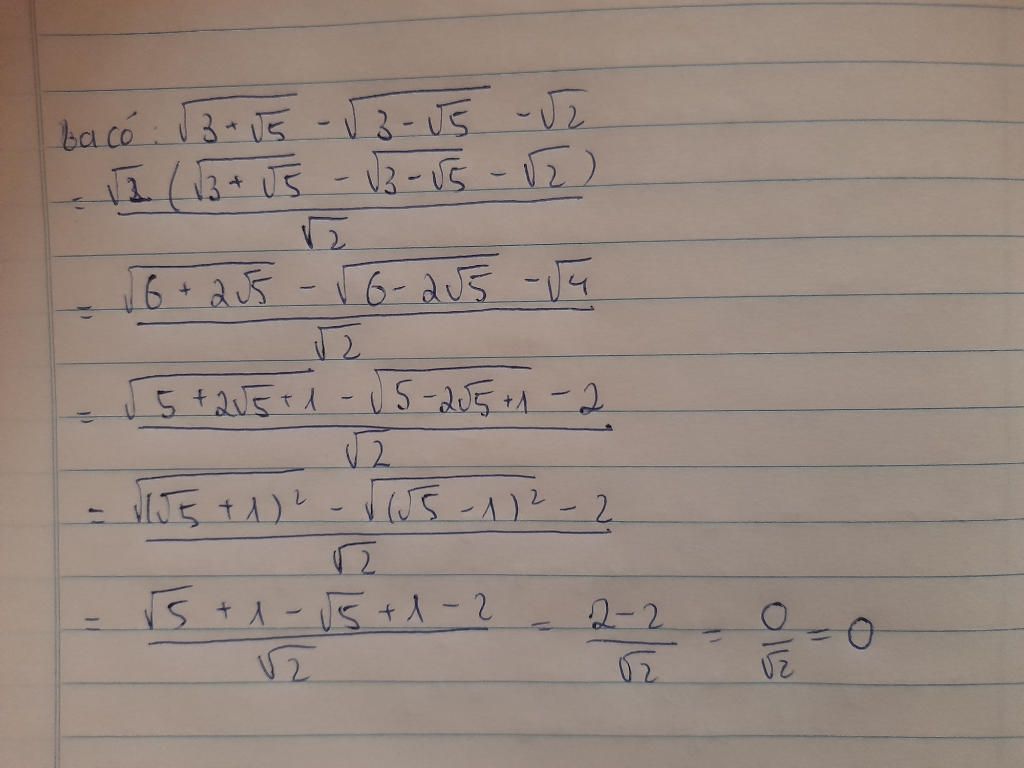 Ta có: √(3 + √5) - √(3 - √5) - √2
= √2 (√(3 + √5) - √(3 - √5) - √2) / √2
= (√(6 + 2√5) - √(6 - 2√5) - √4) / √2
= (√(5 + 2√5 + 1) - √(5 - 2√5 + 1) - 2) / √2
= (√((√5 + 1)²) - √((√5 - 1)²) - 2) / √2
= (√5 + 1 - √5 + 1 - 2) / √2 = (2 - 2) / √2 = 0 / √2 = 0